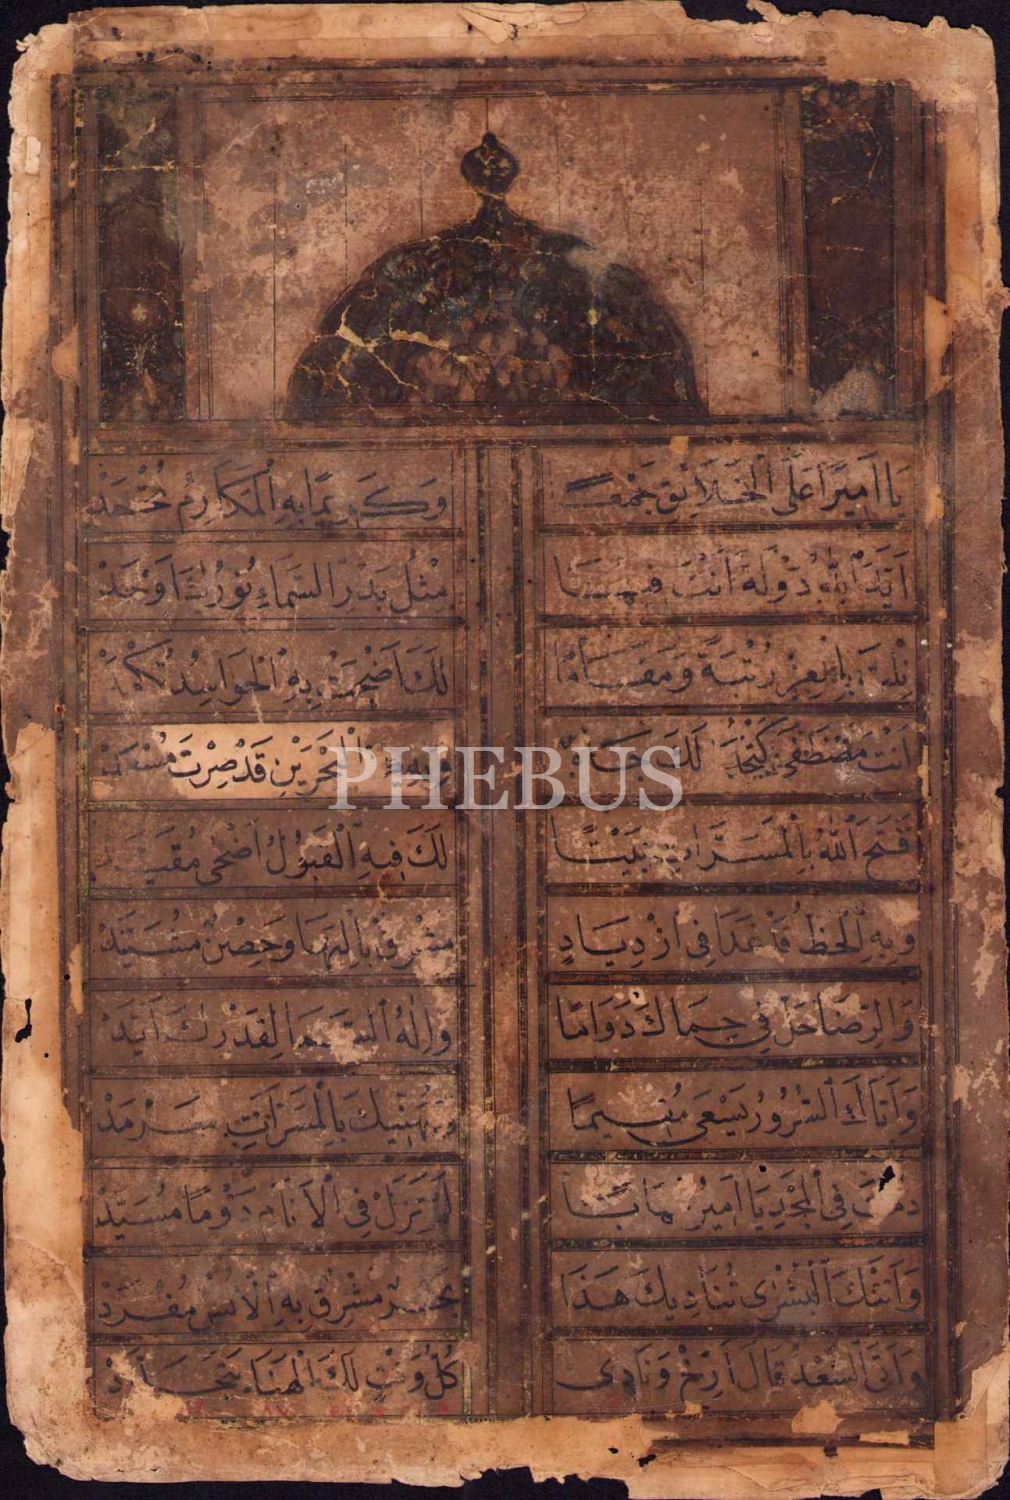 يَا اَمِيرًا عَلَى الْخَلَائِقِ جَمْعًا وَكَرِيمًا بِهِ الْمَكَارِمُ تُحْمَدْ
اَيَّدَ اللّٰهُ دَوْلَةً اَنْتَ فِيهَا مِثْلُ بَدْرِ السَّمَاءِ نُورُكَ اَوْحَدْ
بِالْعِزِّ رُتْبَةً وَمَقَامًا لَكَ اَضْحَتْ بِهِ الْحَوَاسِدُ
اَنْتَ مُصْطَفَى لَكَ الْبَحْرَيْنِ قَدْ صِرْتَ
فَتَحَ اللّٰهُ بِالْمَسَرَّاتِ بَيْتًا لَكَ فِيهِ الْقَبُولُ اَضْحَى
وَبِهِ الْحَظُّ قَدْ غَدَا فِي ازْدِيَادٍ مُشْرِقٌ بِالْبَهَا وَحِصْنٌ مُشَيَّدْ
وَالرِّضَا حَلَّ فِي حِمَاكَ دَوَامًا وَاِلٰهُ السَّمَا لِقَدْرِكَ اَيَّدْ
وَاَتَاكَ السُّرُورُ يَسْعَى مُقِيمًا وَيُهَنِّيكَ بِالْمَسَرَّاتِ سَرْمَدْ
دُمْتَ فِي الْمَجْدِ يَا اَمِيرُ مُهَابًا لَمْ تَزَلْ فِي الْاَنَامِ دَوْمًا مُسَيَّدْ
وَاَتَتْكَ الْبُشْرَى تُنَادِيكَ هَذَا مُشْرِقٌ بِهِ الْاُنْسُ مُفْرَدْ
وَاَتَى السَّعْدُ قَالَ اَرِّخْ وَنَادِي كُلُّ وَقْتٍ لَكَ الْهَنَاءُ
PHEBUS